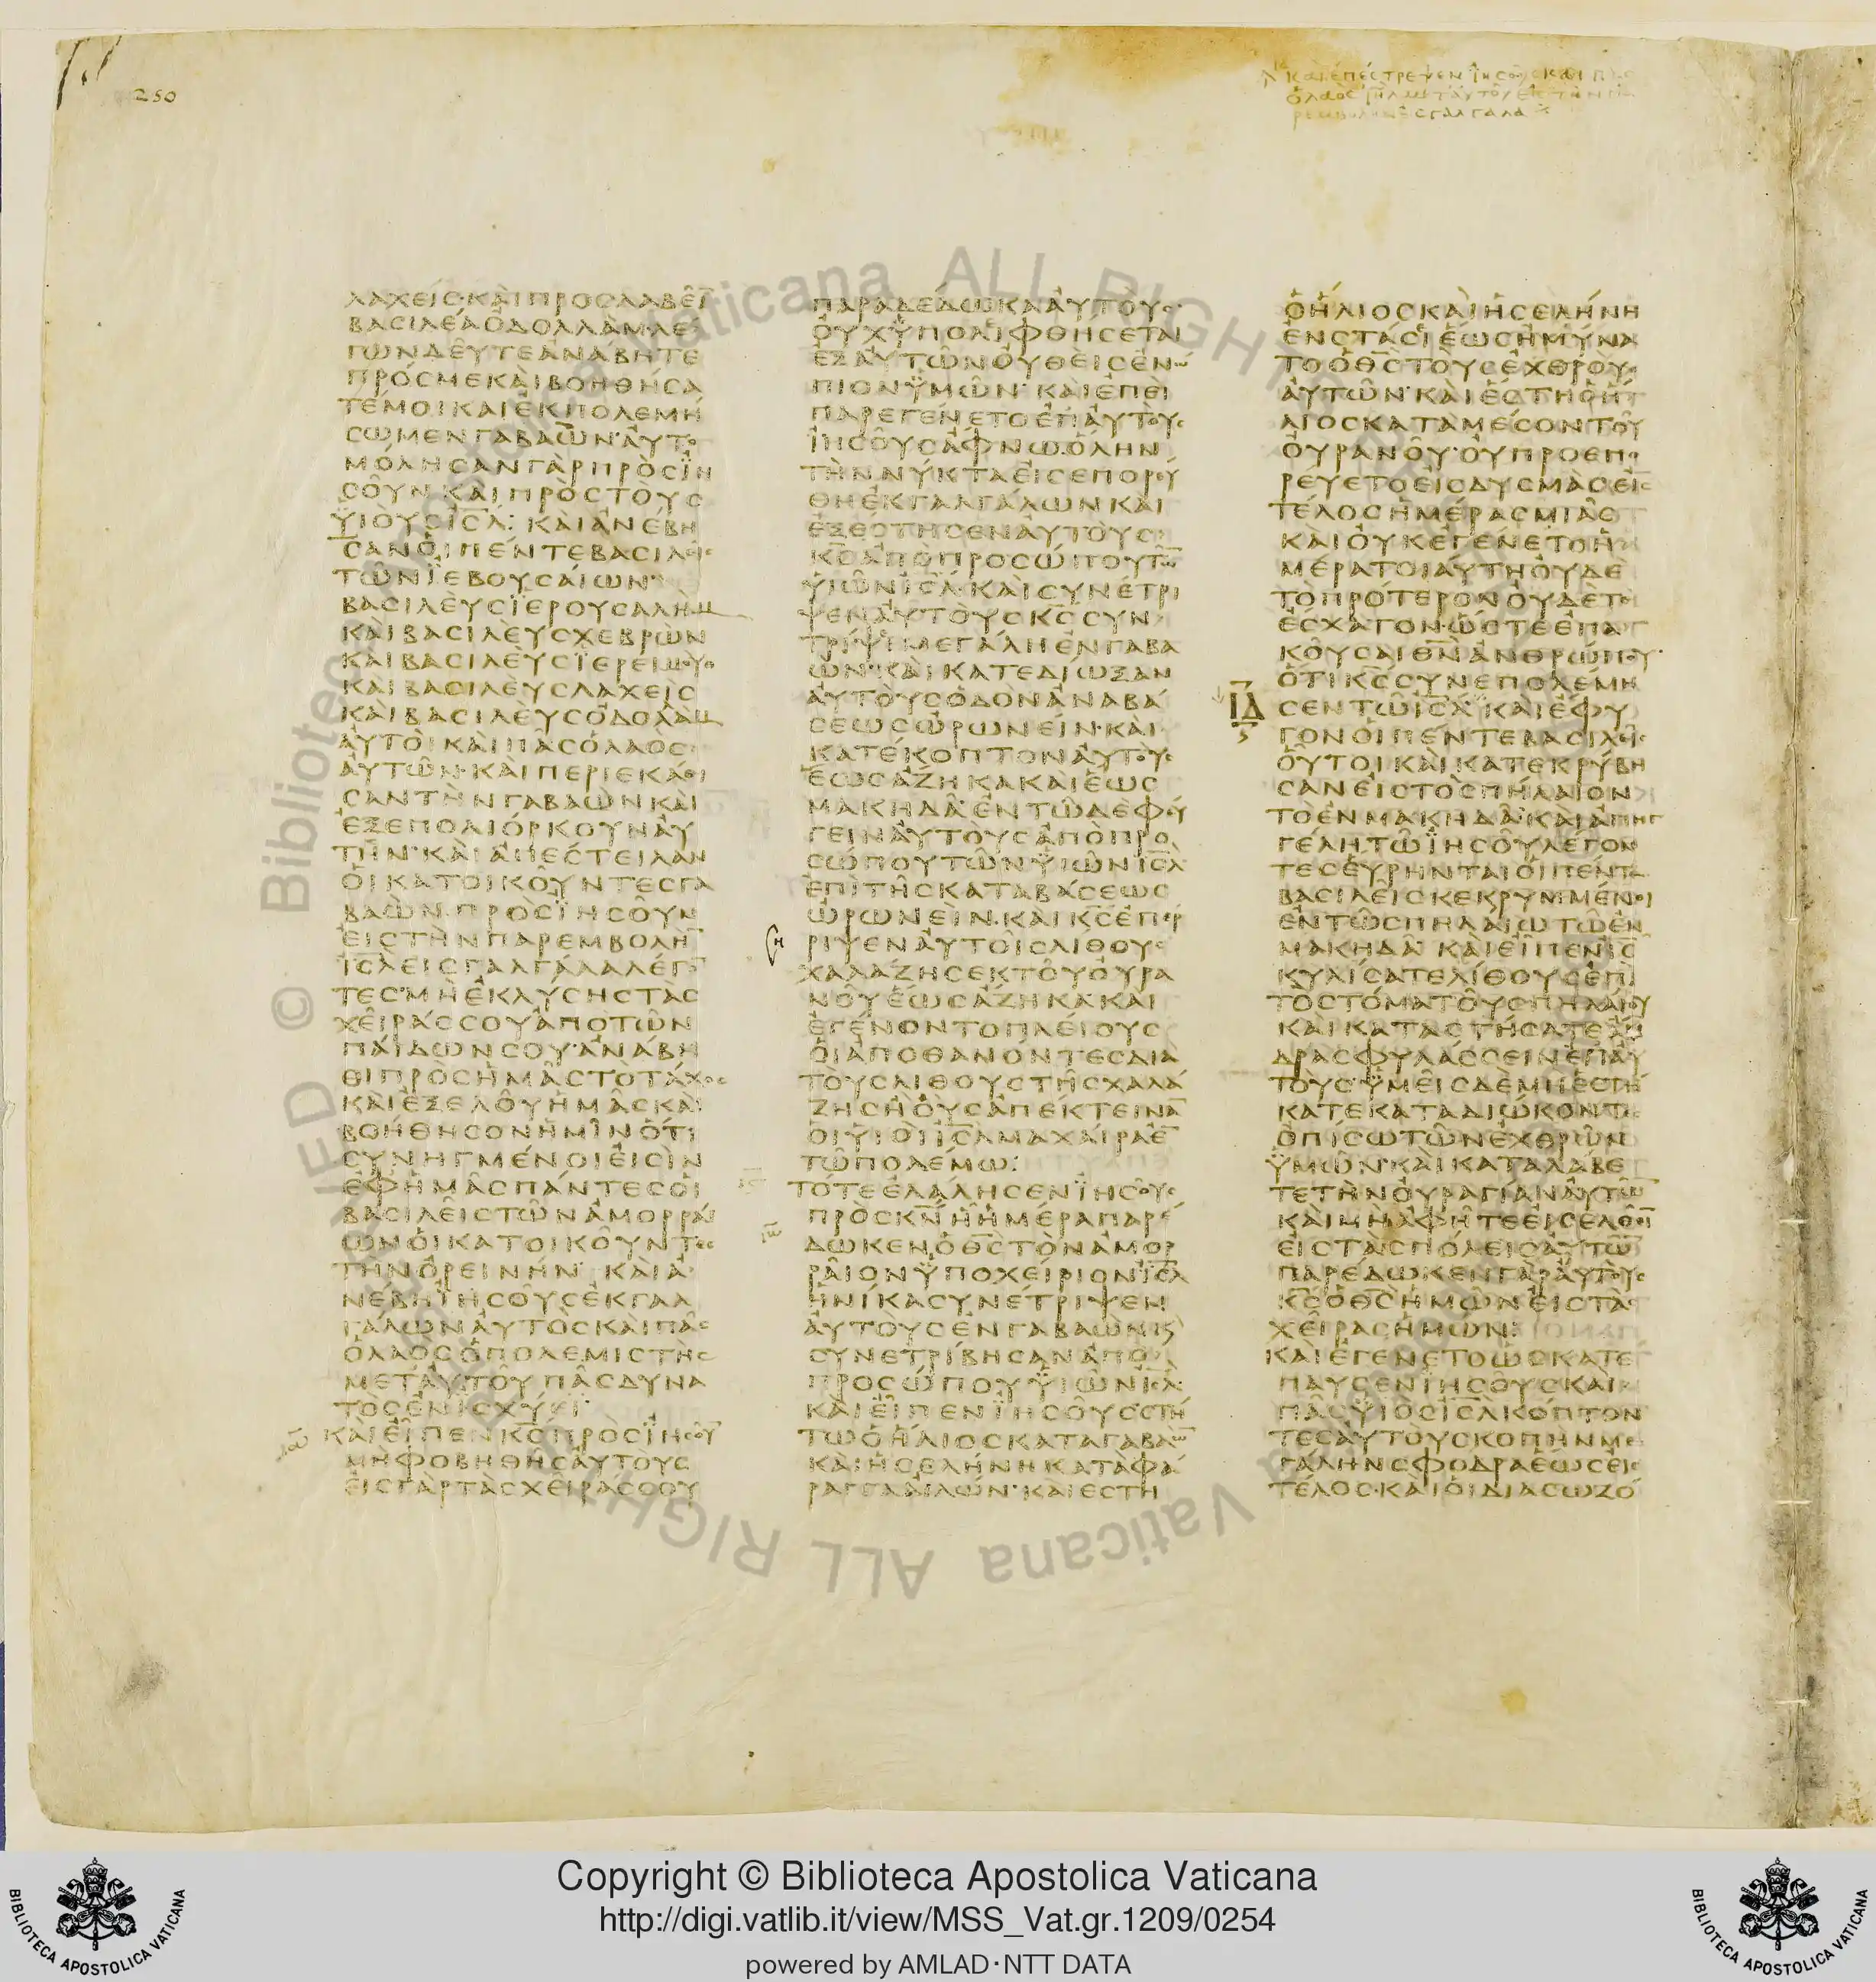 250
ΚΑΙ ΕΠΕΣΤΡΕΨΕΝ ΙΗΣΟΥΣ ΚΑΙ
Ο ΛΑΟΣ
ΛΑΧΕΙΣ·ΚΑΙΠΡΟΣΛΑΒΕΙ
ΒΑΣΙΛΕΑΟΔΟΛΛΑΜ·ΛΕ
ΓΩΝΔΕΥΤΕΑΝΑΒΗΤΕ
ΠΡΟΣΜΕΚΑΙΒΟΗΘΗΣΑ
ΤΕΜΟΙΚΑΙΕΚΠΟΛΕΜΗ
ΣΩΜΕΝΓΑΒΑΩΝ·ΑΥΤΟ
ΜΟΛΗΣΑΝΓΑΡΠΡΟΣΙΗ
ΣΟΥΝΚΑΙΠΡΟΣΤΟΥΣ
ΥΙΟΥΣΙΣΛ: ΚΑΙΑΝΕΒΗ
ΣΑΝΟΙΠΕΝΤΕΒΑΣΙΛΕΙΣ
ΤΩΝΙΕΒΟΥΣΑΙΩΝ·
ΒΑΣΙΛΕΥΣΙΕΡΟΥΣΑΛΗΜ
ΚΑΙΒΑΣΙΛΕΥΣΧΕΒΡΩΝ
ΚΑΙΒΑΣΙΛΕΥΣΙΕΡΕΙΜΟΥΘ
ΚΑΙΒΑΣΙΛΕΥΣΛΑΧΕΙΣ
ΚΑΙΒΑΣΙΛΕΥΣΟΔΟΛΛΑΜ
ΑΥΤΟΙΚΑΙΠΑΣΟΛΑΟΣ
ΑΥΤΩΝ·ΚΑΙΠΕΡΙΕΚΑΘΙ
ΣΑΝΤΗΝΓΑΒΑΩΝΚΑΙ
ΕΞΕΠΟΛΙΟΡΚΟΥΝΑΥ
ΤΗΝ·ΚΑΙΑΠΕΣΤΕΙΛΑΝ
ΟΙΚΑΤΟΙΚΟΥΝΤΕΣΓΑ
ΒΑΩΝ·ΠΡΟΣΙΗΣΟΥΝ
ΕΙΣΤΗΝΠΑΡΕΜΒΟΛΗ̅
ΙΣΛΕΙΣΓΑΛΓΑΛΑΛΕΓΟ̅
ΤΕΣ·ΜΗΕΚΛΥΣΗΣΤΑΣ
ΧΕΙΡΑΣΣΟΥΑΠΟΤΩΝ
ΠΑΙΔΩΝΣΟΥ·ΑΝΑΒΗ
ΘΙΠΡΟΣΗΜΑΣΤΟΤΑΧΟΣ
ΚΑΙΕΞΕΛΟΥΗΜΑΣΚΑΙ
ΒΟΗΘΗΣΟΝΗΜΙΝΟΤΙ
ΣΥΝΗΓΜΕΝΟΙΕΙΣΙΝ
ΕΦΗΜΑΣΠΑΝΤΕΣΟΙ
ΒΑΣΙΛΕΙΣΤΩΝΑΜΟΡΡΑΙ
ΩΝΟΙΚΑΤΟΙΚΟΥΝΤΕΣ
ΤΗΝΟΡΕΙΝΗΝ· ΚΑΙΑ
ΝΕΒΗΙΗΣΟΥΣΕΚΓΑΛ
ΓΑΛΩΝΑΥΤΟΣΚΑΙΠΑΣ
ΟΛΑΟΣΟΠΟΛΕΜΙΣΤΗΣ
ΜΕΤΑΥΤΟΥΠΑΣΔΥΝΑ
ΤΟΣΕΝΙΣΧΥΕΙ
ΚΑΙΕΙΠΕΝΚΣΠΡΟΣΙΗΣΟΥ̅
ΜΗΦΟΒΗΘΗΣΑΥΤΟΥΣ
ΕΙΣΓΑΡΤΑΣΧΕΙΡΑΣΣΟΥ
ΠΑΡΑΔΕΔΩΚΑΑΥΤΟΥΣ·
ΟΥΧΥΠΟΛΙΦΘΗΣΕΤΑΙ
ΕΞΑΥΤΩΝΟΥΘΕΙΣΕΝΩ
ΠΙΟΝΥΜΩΝ· ΚΑΙΕΠΕΙ
ΠΑΡΕΓΕΝΕΤΟΕΠΑΥΤΟΥΣ
ΙΗΣΟΥΣΑΦΝΩ·ΟΛΗΝ
ΤΗΝΝΥΚΤΑΕΙΣΕΠΟΡΕΥ
ΘΗΕΚΓΑΛΓΑΛΩΝΚΑΙ
ΕΞΕΣΤΗΣΕΝΑΥΤΟΥΣ
ΚΣΑΠΟΠΡΟΣΩΠΟΥΤΩ̅
ΥΙΩΝΙΣΛ·ΚΑΙΣΥΝΕΤΡΙ
ΨΕΝΑΥΤΟΥΣΚΣΣΥΝ
ΤΡΙΨΙΜΕΓΑΛΗΕΝΓΑΒΑ
ΩΝ·ΚΑΙΚΑΤΕΔΙΩΞΑΝ
ΑΥΤΟΥΣΟΔΟΝΑΝΑΒΑ
ΣΕΩΣΩΡΩΝΕΙΝ·ΚΑΙ
ΚΑΤΕΚΟΠΤΟΝΑΥΤΟΥΣ
ΕΩΣΑΖΗΚΑΚΑΙΕΩΣ
ΜΑΚΗΔΑ·ΕΝΤΩΔΕΦΕΥ
ΓΕΙΝΑΥΤΟΥΣΑΠΟΠΡΟ
ΣΩΠΟΥΤΩΝΥΙΩΝΙΣΛ
ΕΠΙΤΗΣΚΑΤΑΒΑΣΕΩΣ
ΩΡΩΝΕΙΝ·ΚΑΙΚΣΕΠΕΡ
ΡΙΨΕΝΑΥΤΟΙΣΛΙΘΟΥΣ
ΧΑΛΑΖΗΣΕΚΤΟΥΟΥΡΑ
ΝΟΥΕΩΣΑΖΗΚΑΚΑΙ
ΕΓΕΝΟΝΤΟΠΛΕΙΟΥΣ
ΟΙΑΠΟΘΑΝΟΝΤΕΣΔΙΑ
ΤΟΥΣΛΙΘΟΥΣΤΗΣΧΑΛΑ
ΖΗΣΗΟΥΣΑΠΕΚΤΕΙΝΑ̅
ΟΙΥΙΟΙΙΣΛΜΑΧΑΙΡΑΕ̅
ΤΩΠΟΛΕΜΩ:
ΤΟΤΕΕΛΑΛΗΣΕΝΙΗΣΟΥΣ
ΠΡΟΣΚΝΗΗΜΕΡΑΠΑΡΕ
ΔΩΚΕΝΟΘΣΤΟΝΑΜΟΡ
ΡΑΙΟΝΥΠΟΧΕΙΡΙΟΝΙΣΛ
ΗΝΙΚΑΣΥΝΕΤΡΙΨΕΝ
ΑΥΤΟΥΣΕΝΓΑΒΑΩΝΚ
ΣΥΝΕΤΡΙΒΗΣΑΝΑΠΟ
ΠΡΟΣΩΠΟΥΥΙΩΝΙΣΛ
ΚΑΙΕΙΠΕΝΙΗΣΟΥΣΣΤΗ
ΤΩΟΗΛΙΟΣΚΑΤΑΓΑΒΑΩ̅
ΚΑΙΗΣΕΛΗΝΗΚΑΤΑΦΑ
ΡΑΓΓΑΑΙΛΩΝ· ΚΑΙΕΣΤΗ
ΟΗΛΙΟΣΚΑΙΗΣΕΛΗΝΗ
ΕΝΣΤΑΣΕΙΕΩΣΗΜΥΝΑ
ΤΟΟΘΣΤΟΥΣΕΧΘΡΟΥΣ
ΑΥΤΩΝ· ΚΑΙΕΣΤΗΟΗ
ΛΙΟΣΚΑΤΑΜΕΣΟΝΤΟΥ
ΟΥΡΑΝΟΥ·ΟΥΠΡΟΕΠΟ
ΡΕΥΕΤΟΕΙΣΔΥΣΜΑΣΕΙΣ
ΤΕΛΟΣΗΜΕΡΑΣΜΙΑΣ
ΚΑΙΟΥΚΕΓΕΝΕΤΟΗ
ΜΕΡΑΤΟΙΑΥΤΗΟΥΔΕ
ΤΟΠΡΟΤΕΡΟΝΟΥΔΕΤΟ
ΕΣΧΑΤΟΝ·ΩΣΤΕΕΠΑ
ΚΟΥΣΑΙΘΝΑΝΘΡΩΠΟΥ·
ΟΤΙΚΣΣΥΝΕΠΟΛΕΜΗ
ΙΔ ΣΕΝΤΩΙΣΛ· ΚΑΙΕΦΥ
ΓΟΝΟΙΠΕΝΤΕΒΑΣΙΛΕΙΣ
ΟΥΤΟΙΚΑΙΚΑΤΕΚΡΥΒΗ
ΣΑΝΕΙΣΤΟΣΠΗΛΑΙΟΝ
ΤΟΕΝΜΑΚΗΔΑ·ΚΑΙΑΠΗΓ
ΓΕΛΗΤΩΙΗΣΟΥΛΕΓΟΝ
ΤΕΣΕΥΡΗΝΤΑΙΟΙΠΕΝΤΕ
ΒΑΣΙΛΕΙΣΚΕΚΡΥΜΜΕΝΟΙ
ΕΝΤΩΣΠΗΛΑΙΩΤΩΕΝ
ΜΑΚΗΔΑ· ΚΑΙΕΙΠΕΝΙΣ
ΚΥΛΙΣΑΤΕΛΙΘΟΥΣΕΠΙ
ΤΟΣΤΟΜΑΤΟΥΣΠΗΛΑΙΟΥ
ΚΑΙΚΑΤΑΣΤΗΣΑΤΕΑΝ
ΔΡΑΣΦΥΛΑΣΣΕΙΝΕΠΑΥ
ΤΟΥΣ·ΥΜΕΙΣΔΕΜΗΕΣΤΗ
ΚΑΤΕΚΑΤΑΔΙΩΚΟΝΤΕΣ
ΟΠΙΣΩΤΩΝΕΧΘΡΩΝ
ΥΜΩΝ·ΚΑΙΚΑΤΑΛΑΒΕ
ΤΕΤΗΝΟΥΡΑΓΙΑΝΑΥΤΩ̅
ΚΑΙΜΗΑΦΗΤΕΕΙΣΕΛΘΕΙ̅
ΕΙΣΤΑΣΠΟΛΕΙΣΑΥΤΩ̅
ΠΑΡΕΔΩΚΕΝΓΑΡΑΥΤΟΥΣ
ΚΣΟΘΣΗΜΩΝΕΙΣΤΑΣ
ΧΕΙΡΑΣΗΜΩΝ:
ΚΑΙΕΓΕΝΕΤΟΩΣΚΑΤΕ
ΠΑΥΣΕΝΙΗΣΟΥΣΚΑΙ
ΠΑΣΥΙΟΣΙΣΛΚΟΠΤΟΝ
ΤΕΣΑΥΤΟΥΣΚΟΠΗΝΜΕ
ΓΑΛΗΝΣΦΟΔΡΑΕΩΣΕΙΣ
ΤΕΛΟΣ·ΚΑΙΟΙΔΙΑΣΩΖΟ
© Biblioteca Apostolica Vaticana ALL RIGHTS RESERVED
Copyright © Biblioteca Apostolica Vaticana
http://digi.vatlib.it/view/MSS_Vat.gr.1209/0254
powered by AMLAD·NTT DATA
BIBLIOTECA APOSTOLICA VATICANA
BIBLIOTECA APOSTOLICA VATICANA